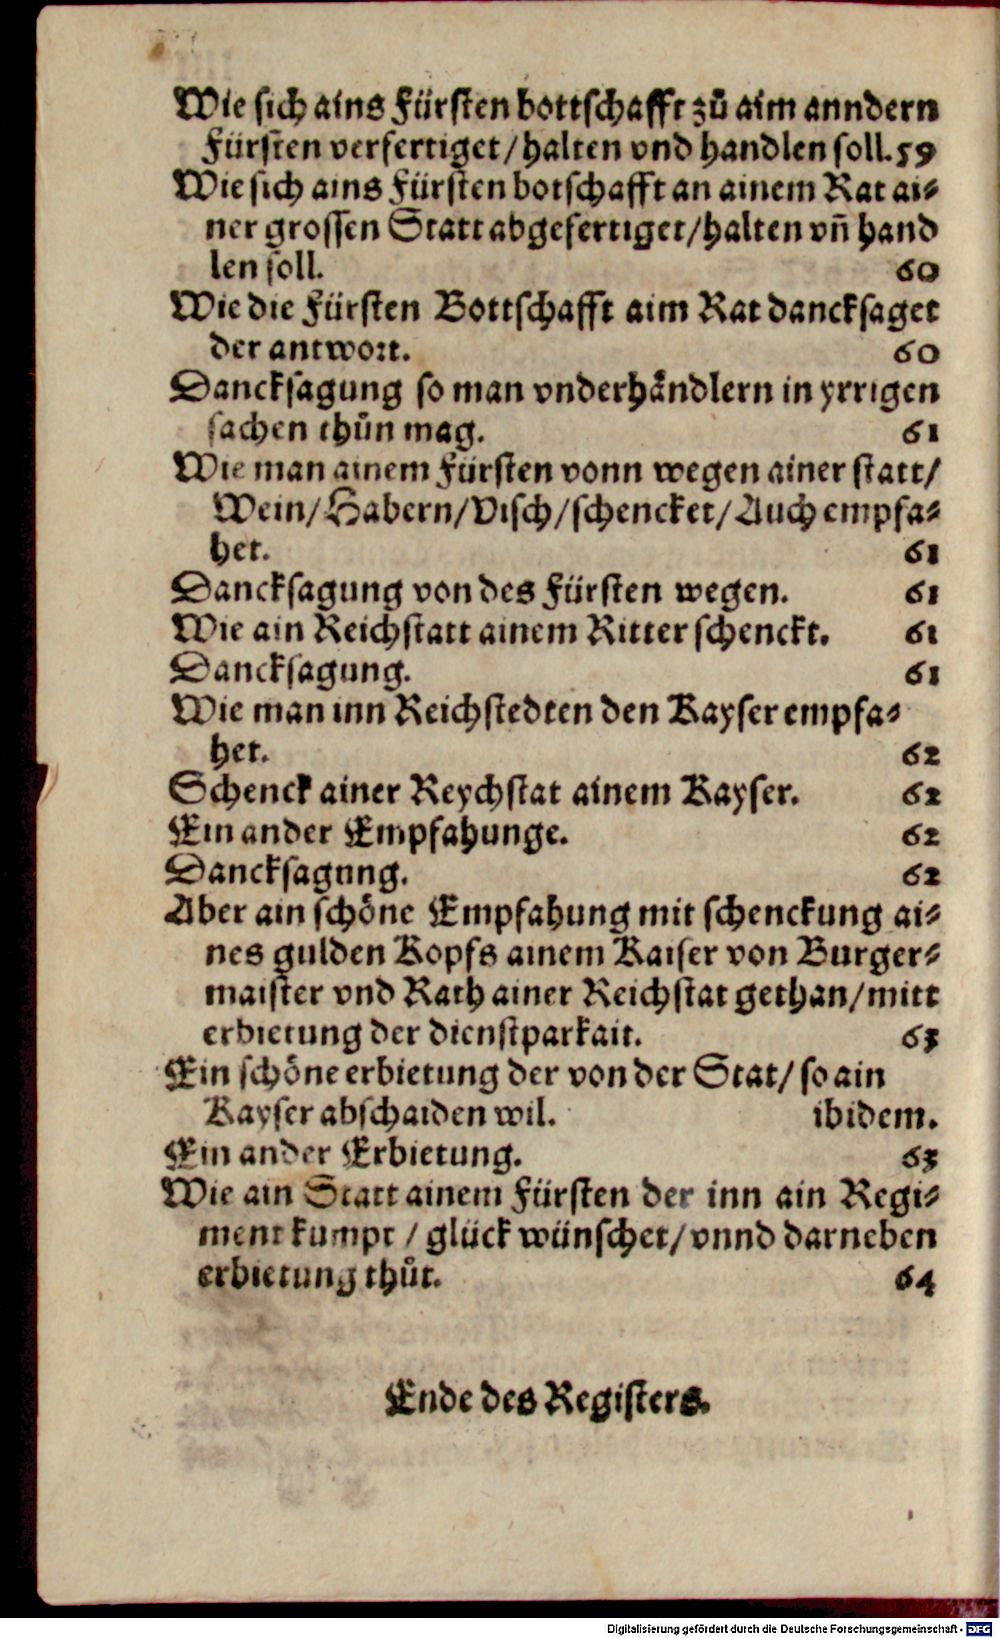 Wie sich ains Fürsten bottschafft zů aim anndern
Fürsten verfertiget/halten vnd handlen soll. 59
Wie sich ains Fürsten botschafft an ainem Rat ai⸗
ner grossen Statt abgefertiget/halten vñ hand
len soll. 60
Wie die Fürsten Bottschafft aim Rat dancksaget
der antwort. 60
Dancksagung so man vnderhåndlern in yrrigen
sachen thůn mag. 61
Wie man ainem Fürsten vonn wegen ainer statt/
Wein/Habern/Visch/schencket/Auch empfa⸗
het. 61
Dancksagung von des Fürsten wegen. 61
Wie ain Reichstatt ainem Ritter schenckt. 61
Dancksagung. 61
Wie man inn Reichstedten den Kayser empfa⸗
het. 62
Schenck ainer Reychstat ainem Kayser. 62
Ein ander Empfahunge. 62
Dancksagnng. 62
Aber ain schöne Empfahung mit schenckung ai⸗
nes gulden Kopfs ainem Kaiser von Burger⸗
maister vnd Rath ainer Reichstat gethan/mitt
erbietung der dienstparkait. 63
Ein schöne erbietung der von der Stat/ so ain
Kayser abschaiden wil. ibidem.
Ein ander Erbietung. 63
Wie ain Statt ainem Fürsten der inn ain Regi⸗
ment kumpt / glück wünschet/vnnd darneben
erbietung thůt. 64
Ende des Registers.
Digitalisierung gefördert durch die Deutsche Forschungsgemeinschaft - DFG